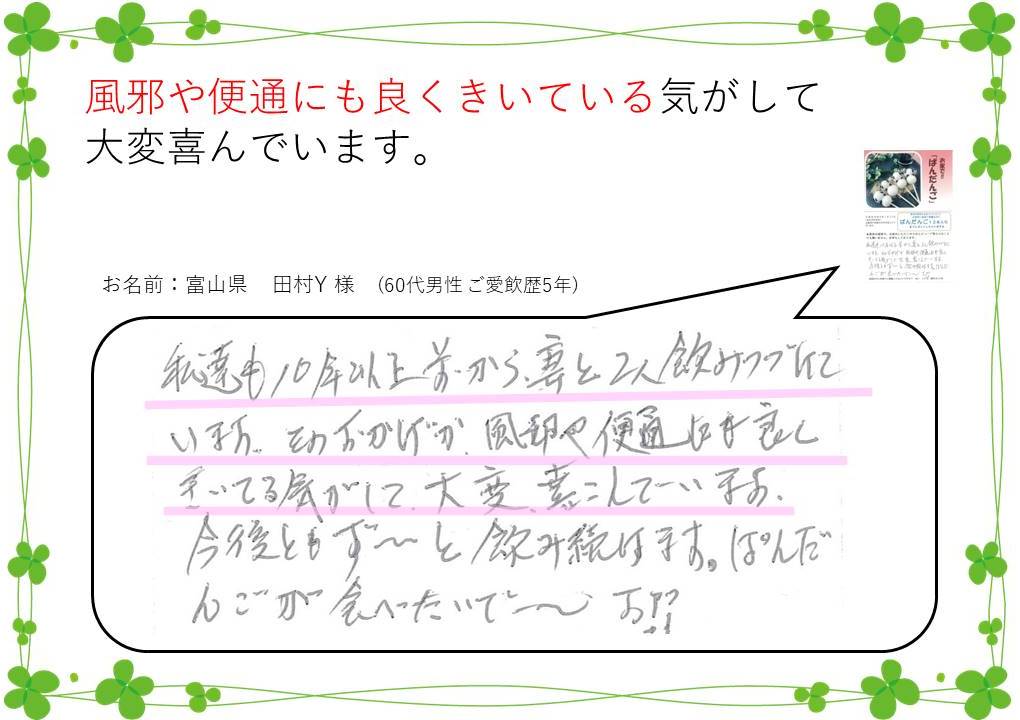 風邪や便通にも良くきいている気がして
大変喜んでいます。
お名前：富山県 田村Y 様 (60代男性 ご愛飲歴5年)
お家で!!
「ぱんだんご」
ぱんだんご12本入り
私達も10年以上前から、妻と2人飲みつづけて
います。そのおかげか、風邪や便通にも良く
きいてる気がして、大変、喜こんで〜います。
今後ともず〜〜と飲み続けます。ぱんだ
んごが食べたいで〜〜す!!